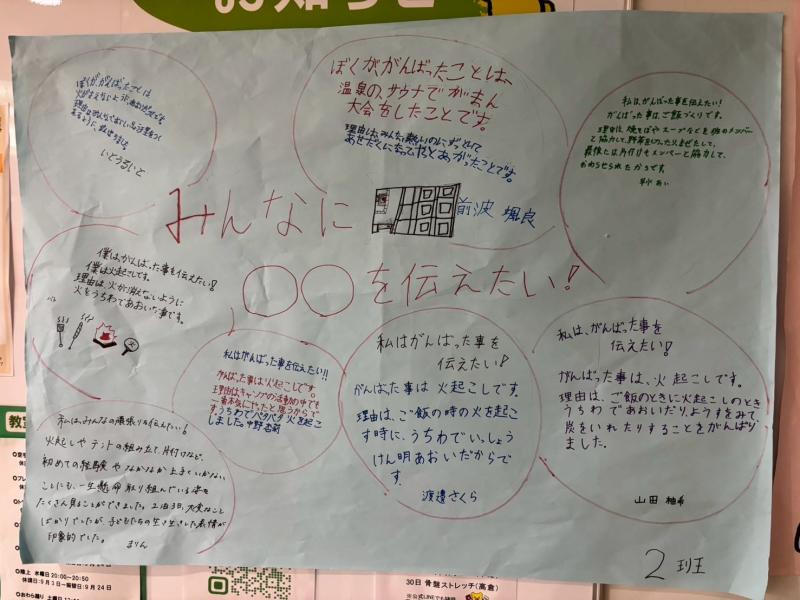 お知らせ
ぼくが、がんばったことは
いとうるいと
ぼくが、がんばったことは、
温泉の、サウナで がまん
大会をしたことです。
理由は、みんな熱いのに、ずっとやって
あせだくになって、やっとあがったことです。
前波 颯良
私は、がんばった事を伝えたい!
がんばった事は、ご飯づくりです。
理由は、焼きそばや スープなどを他のメンバー
と協力して、野菜を切ったり、まぜたりして、
最後には片付けもメンバーと協力して、
おわらせられたからです。
みんなに
○○を伝えたい!
僕は、がんばった事を伝えたい!
僕は火起こしです。
理由は、火が消えないように
火をうちわであおいだ事です。
私はがんばった事を伝えたい!!
がんばった事は火起こしです。
理由はキャンプの活動の中でも
一番本気にやったと思うからです
うちわでパタパタ火を起こ
しました。中野
私はがんばった事を
伝えたい!
がんばった事は 火起こしです。
理由は、ご飯の時の火を起こ
す時に、うちわでいっしょう
けん明あおいだからで
す。
渡邉さくら
私は、がんばった事を
伝えたい!
がんばった事は、火起こしです。
理由は、ご飯のときに火起こしのとき
うちわであおいだり、ようすをみて
炭をいれたりすることをがんばり
ました。
山田 柚希
私は、みんなの頑張りを伝えたい!
火起しやテントの組み立て、片付けなど、
初めての経験やなかなか上手くいかない
ことにも、一生懸命取り組んでいる姿を
たくさん見ることができました。2泊3日、大変なこと
ばかりでしたが、子どもたちの生き生きした表情が
印象的でした。 まりん
2班
教
水曜日20:00~20:50
休講日:9月3日~振替日:9月24日
30日 骨盤ストレッチ(高倉)